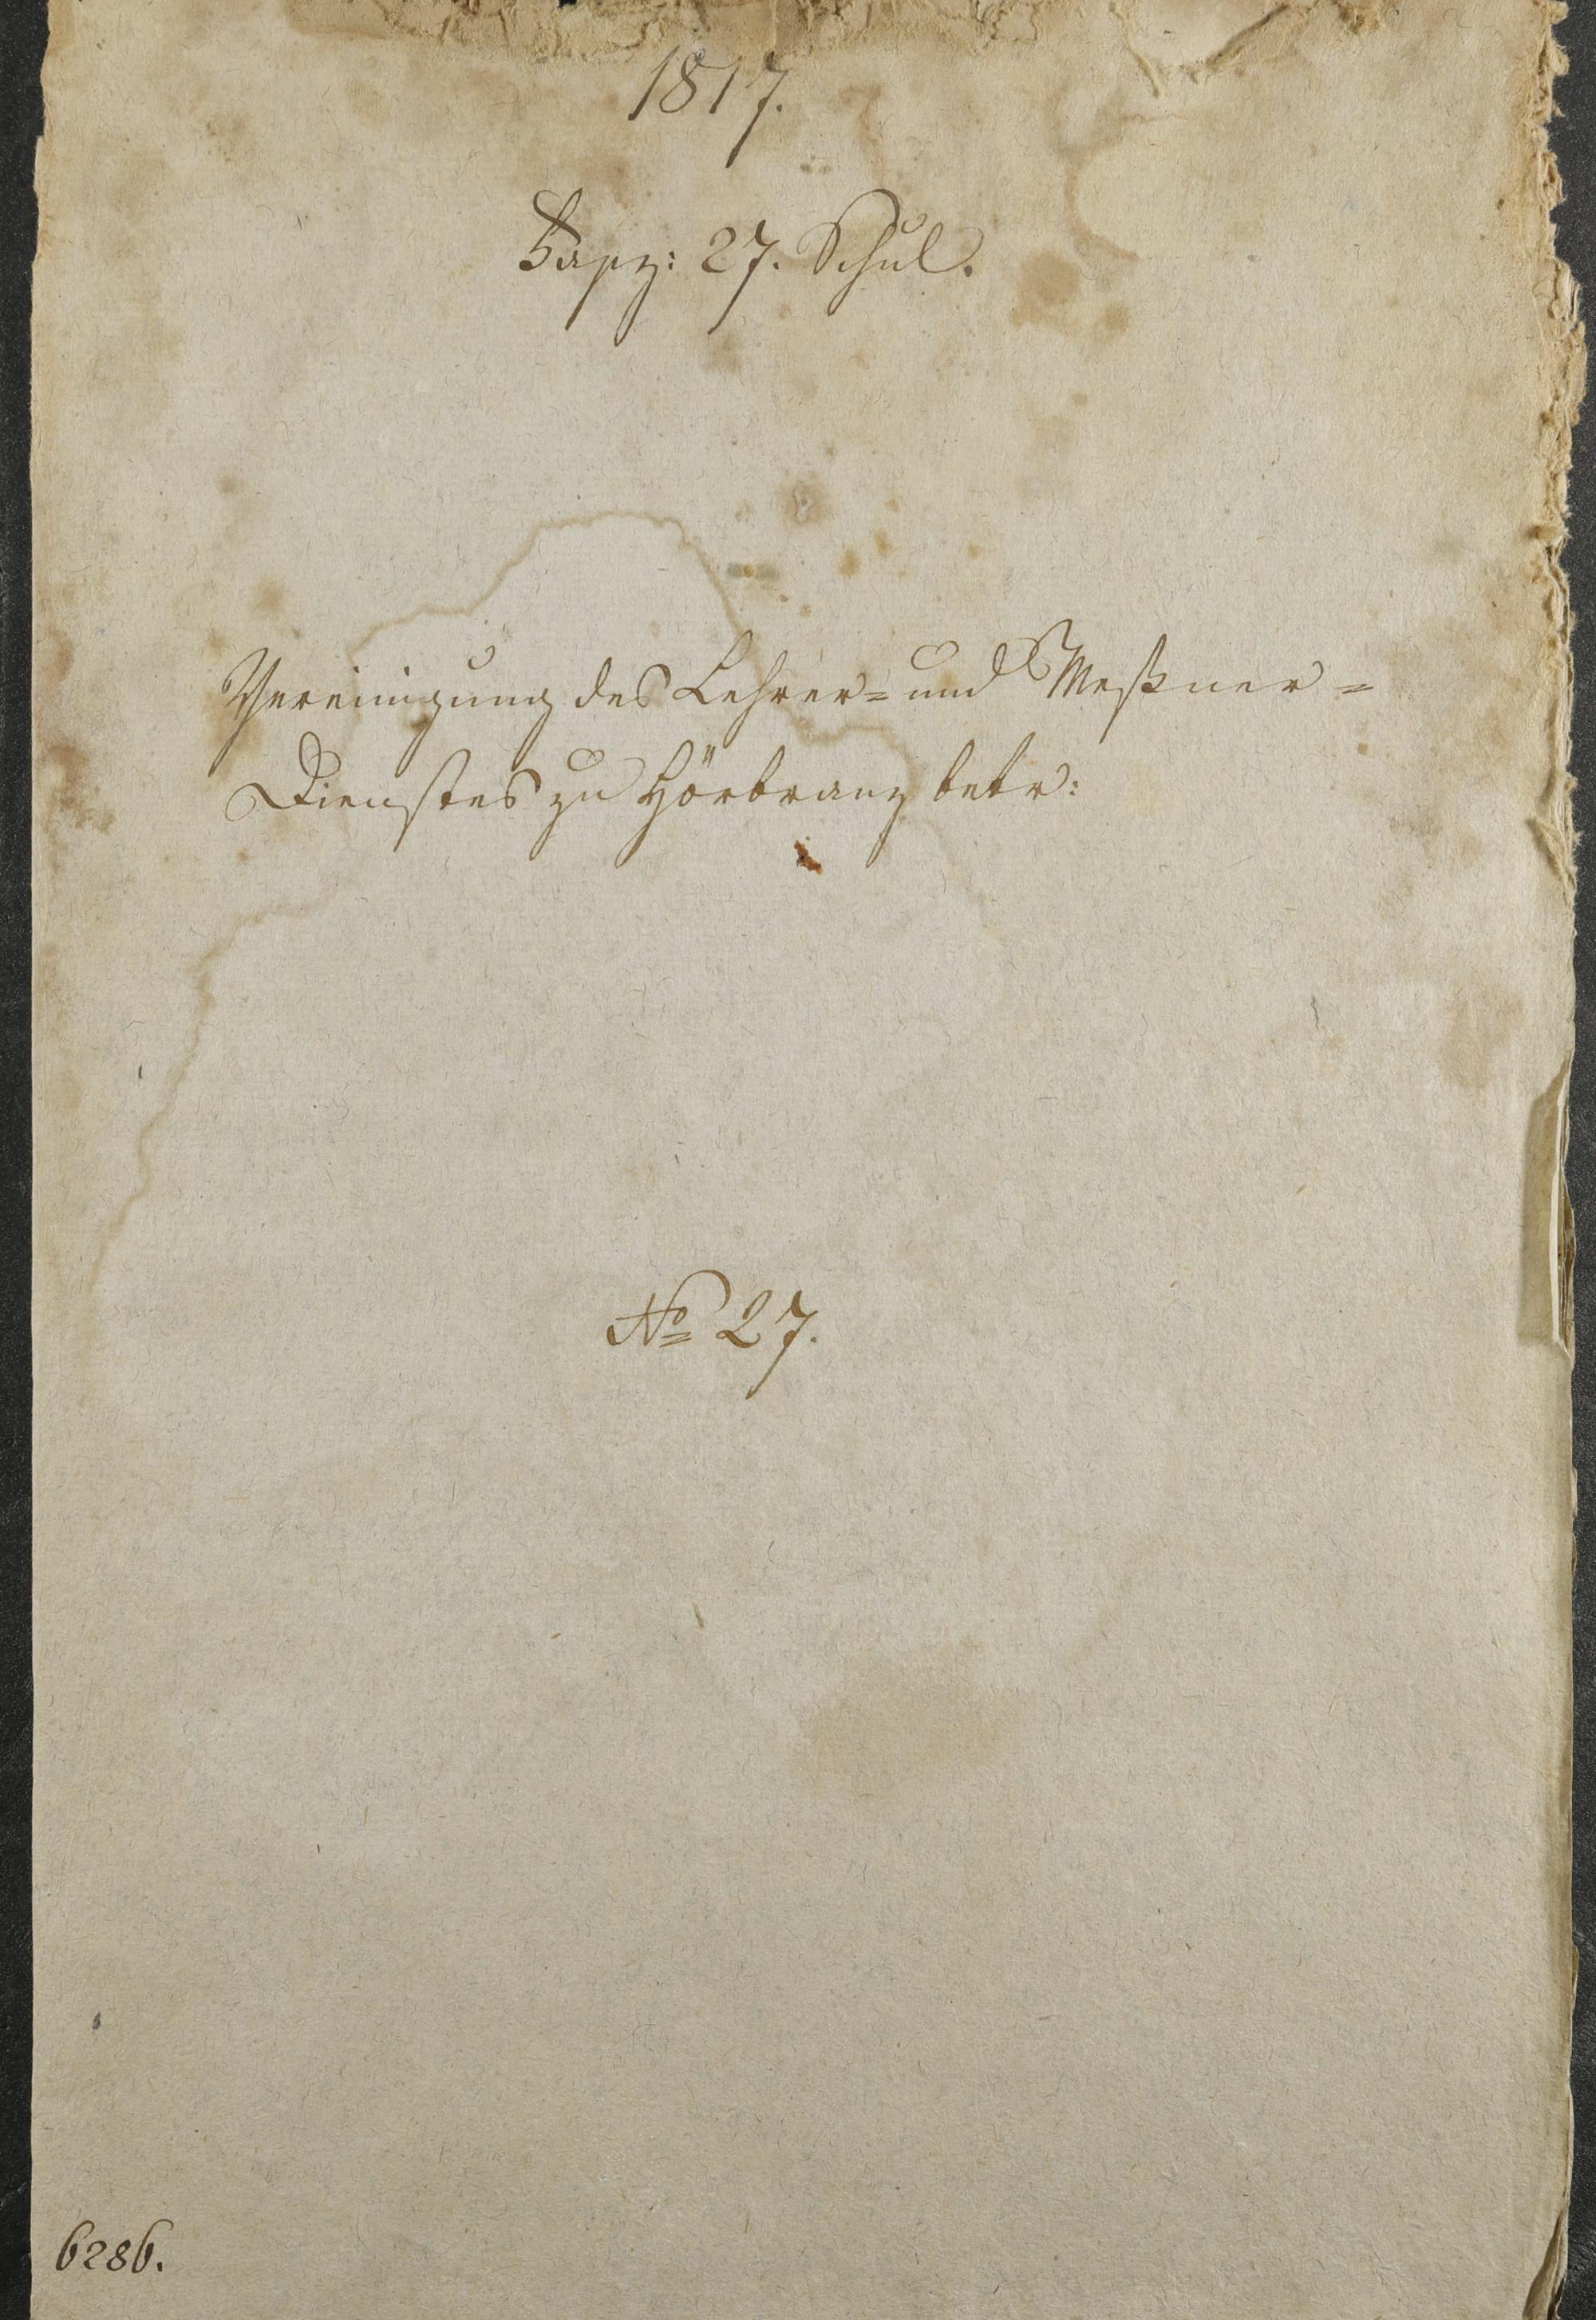 1817.
Fasz: 27. Schul.
Vereinigung des Lehrer= und Meßner=
Dienstes zu Hörbranz betr:
No 27.
6286.